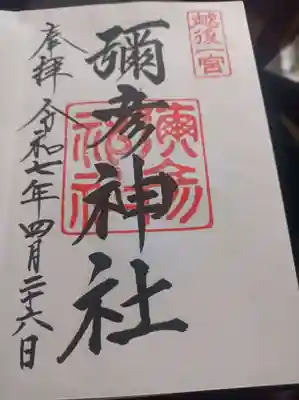 越後一宮
彌彦神社
奉拝 令和七年四月二十六日